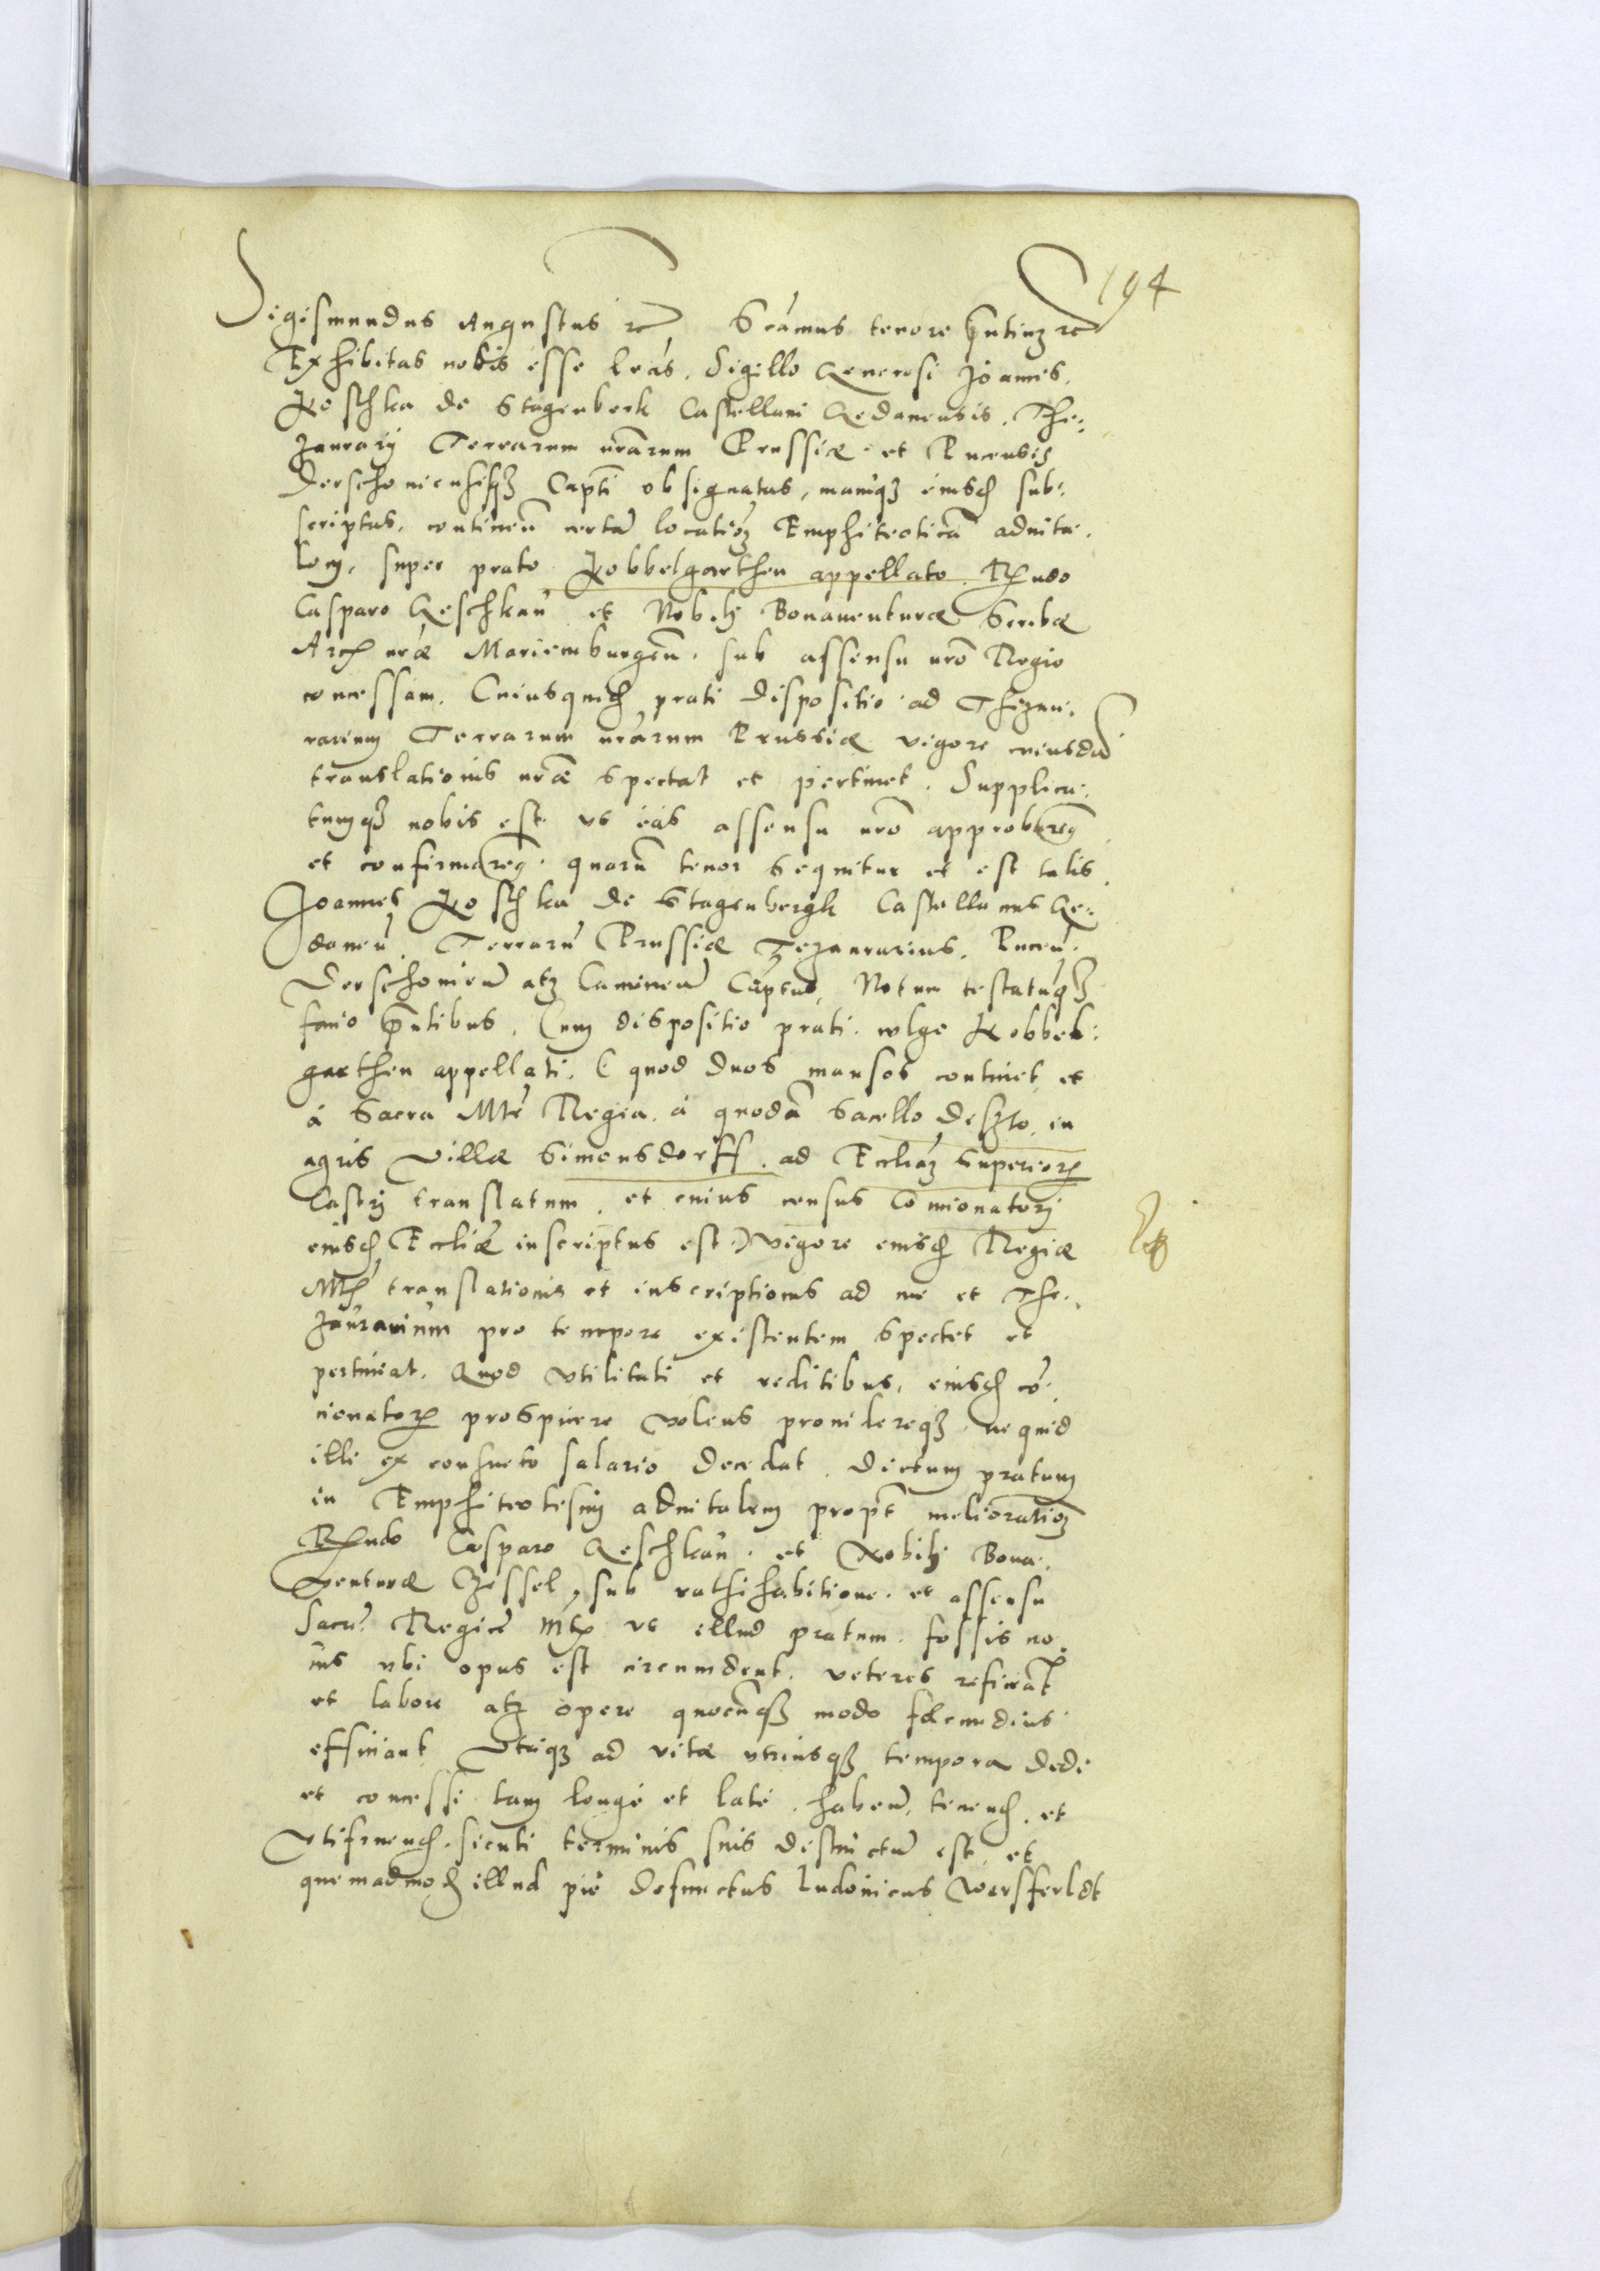 194
Sigismundus Augustus etc Scamus tenore pñtium etc
Exhibitas nobis esse lras, Sigillo Generosi Joannis
Koschka de Stagenberk Castellani Gedanensis, The:
zaurarij Terrarum nrarum Prussiæ et Pucensis
Derschoniensisq3 Capti obsignatas, manuq3 eiusd sub:
scriptas, continen certã locationẽ Emphiteoticã aduita:
lem, super prato Kobbelgarthen appellato Rndo
Casparo Geschkau et Nobili Bonauenturæ Scribæ
Arcis nræ Mariemburgen, sub assensu nro Regio
concessam. Cuiusquid prati dispositio ad Thezau:
rarium Terrarum nrarum Prussiæ vigore cuiusdã
translationis nræ spectat et pertinet. Supplica:
tumq3 nobis est vt eas assensu nro approbarem
et confirmarem. quarũ tenor sequitur et est talis
Joannes Koschka de Stagenbergk Castellanus Ge:
danen, Terrarũ Prussiæ Tezaurarius, Pucen
Derschonien atq3 Caminen Captus, Notum testatũq3
facio pñtibus, Cum dispositio prati wlgo Kobbel:
garthen appellati, (quod duos mansos continet et
á Sacra Mte Regia á quodã Sacello deserto, in
agris Villæ Simonsdorff, ad Eccliam Superioris
Castri translatum, et cuius census Concionatori
eiusd Eccliæ inscriptus est) vigore eiusd Regiæ
Mtis translationis et inscriptionis ad me et The:
zaurarium pro tempore existentem spectet et
pertineat. Quod vtilitati et reditibus, eiusd co:
cionatoris prospicere volens prouidereq3 ne quid
illi ex consueto salario decedat, dictum pratum
in Emphiteotesim aduitalem propt melioratiom
Rndo Casparo Geschkau et Nobili Bona:
venturæ Zessel, sub rathihabitione et assensu
Sacræ Regiæ Mtis vt illud pratum fossis no:
uis vbi opus est circumdent, veteres reficiãt
et labore atq3 opere quocũq3 modo fæcundius
efficiant Vtriq3 ad vitæ vtriusq3 tempora dedi
et concessi tam longe et late, haben, tenend, et
vtifruend, sicuti terminis suis distinctũ est, et
quemadmod illud pie defunctus Ludouicus Wersfeldt